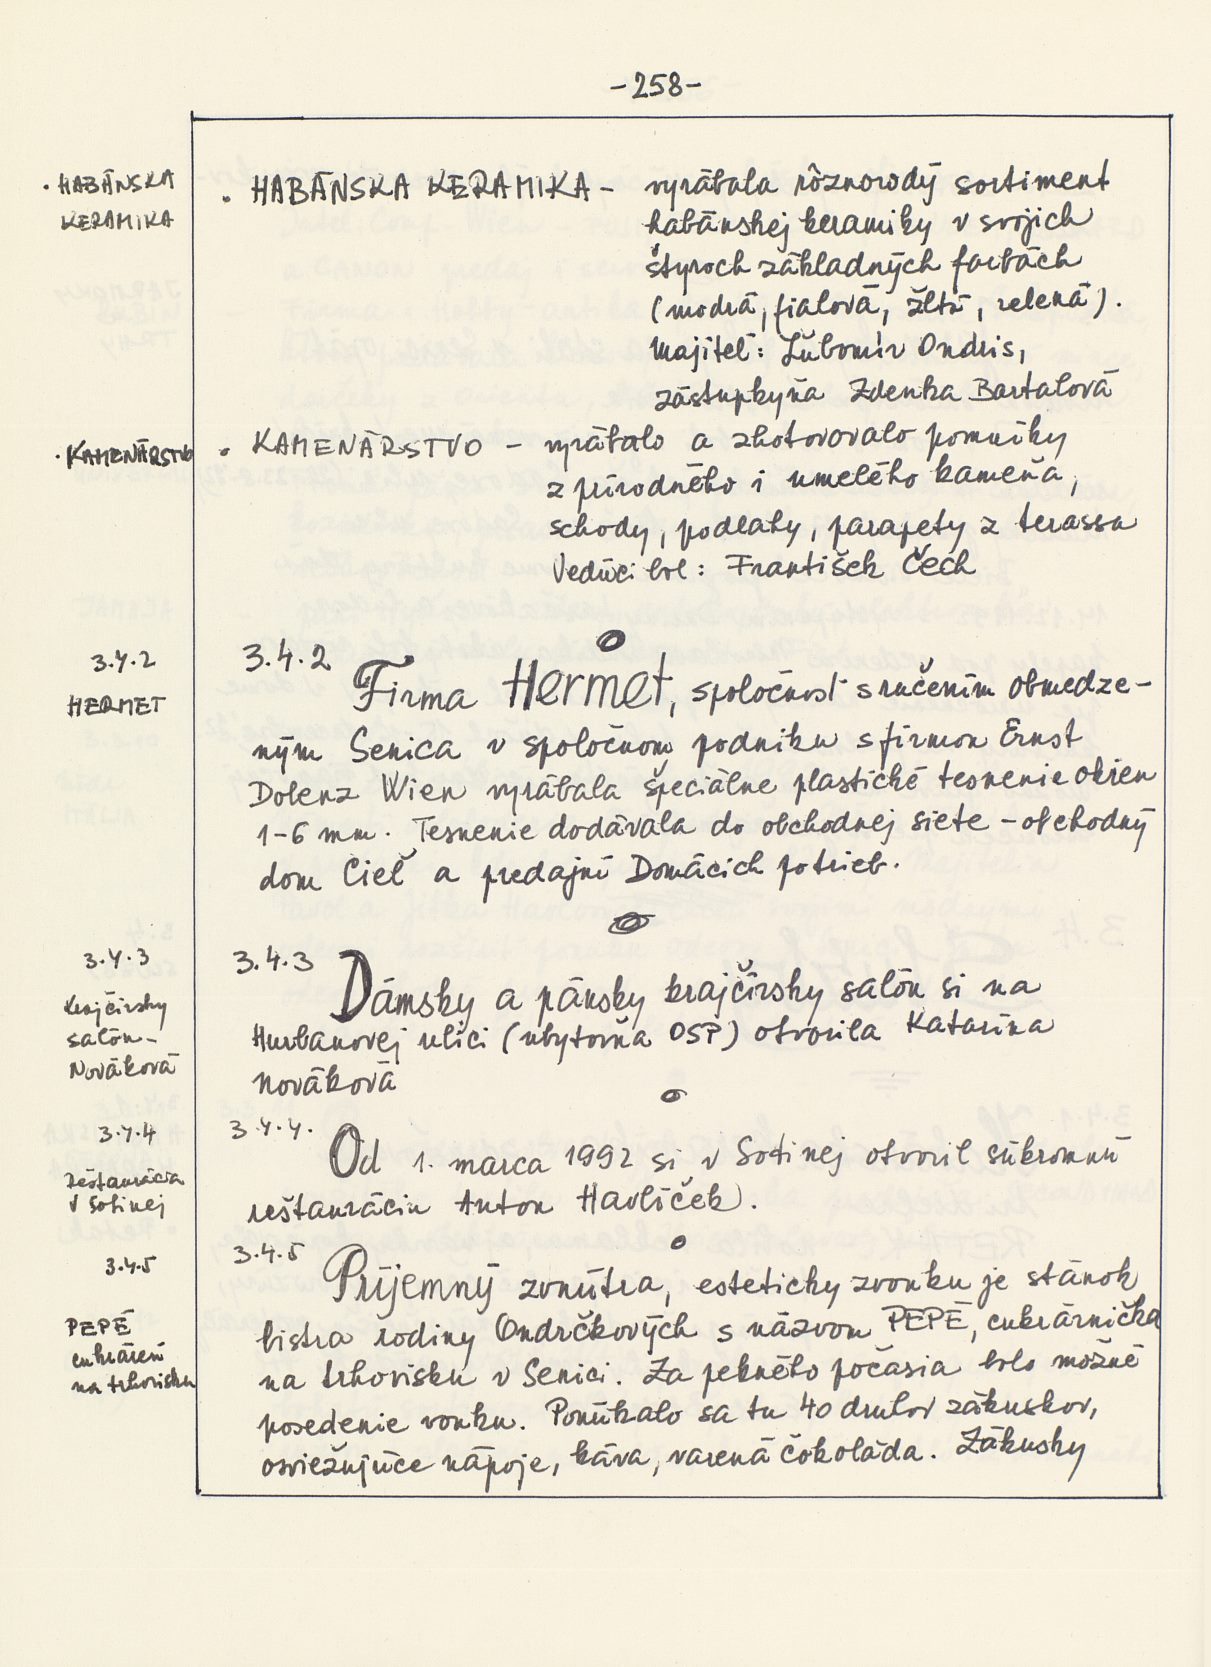 -258-
• HABÁNSKA
KERAMIKA
• HABÁNSKA KERAMIKA - vyrábala rôznorodý sortiment
habánskej keramiky v svojich
štyroch základných farbách
(modrá, fialová, žltá, zelená).
Majiteľ: Ľubomír Ondris,
zástupkyňa Zdenka Bartalová
• KAMENÁRSTVO
• KAMENÁRSTVO - vyrábalo a zhotovovalo pomníky
z prírodného i umelého kameňa,
schody, podlahy, parapety z terassa
Vedúci bol: František Čech
3.4.2
HERMET
3.4.2 Firma Hermet, spoločnosť s ručením obmedze-
ným Senica v spoločnom podniku s firmou Ernst
Dolenz Wien vyrábala špeciálne plastické tesnenie okien
1-6 mm. Tesnenie dodávala do obchodnej siete - obchodný
dom Cieľ a predajní Domácich potrieb.
3.4.3
Krajčírsky
salón-
Nováková
3.4.3 Dámsky a pánsky krajčírsky salón si na
Hurbanovej ulici (ubytovňa OSP) otvorila Katarína
Nováková
3.4.4
Reštaurácia
v Sotinej
3.4.4. Od 1. marca 1992 si v Sotinej otvoril súkromnú
reštauráciu Anton Havlíček.
3.4.5
PEPÉ
cukráreň
na trhovisku
3.4.5 Príjemný zvnútra, esteticky zvonku je stánok
bistra rodiny Ondrčkových s názvom PEPÉ, cukrárnička
na trhovisku v Senici. Za pekného počasia bolo možné
posedenie vonku. Ponúkalo sa tu 40 druhov zákuskov,
osviežujúce nápoje, káva, varená čokoláda. Zákusky